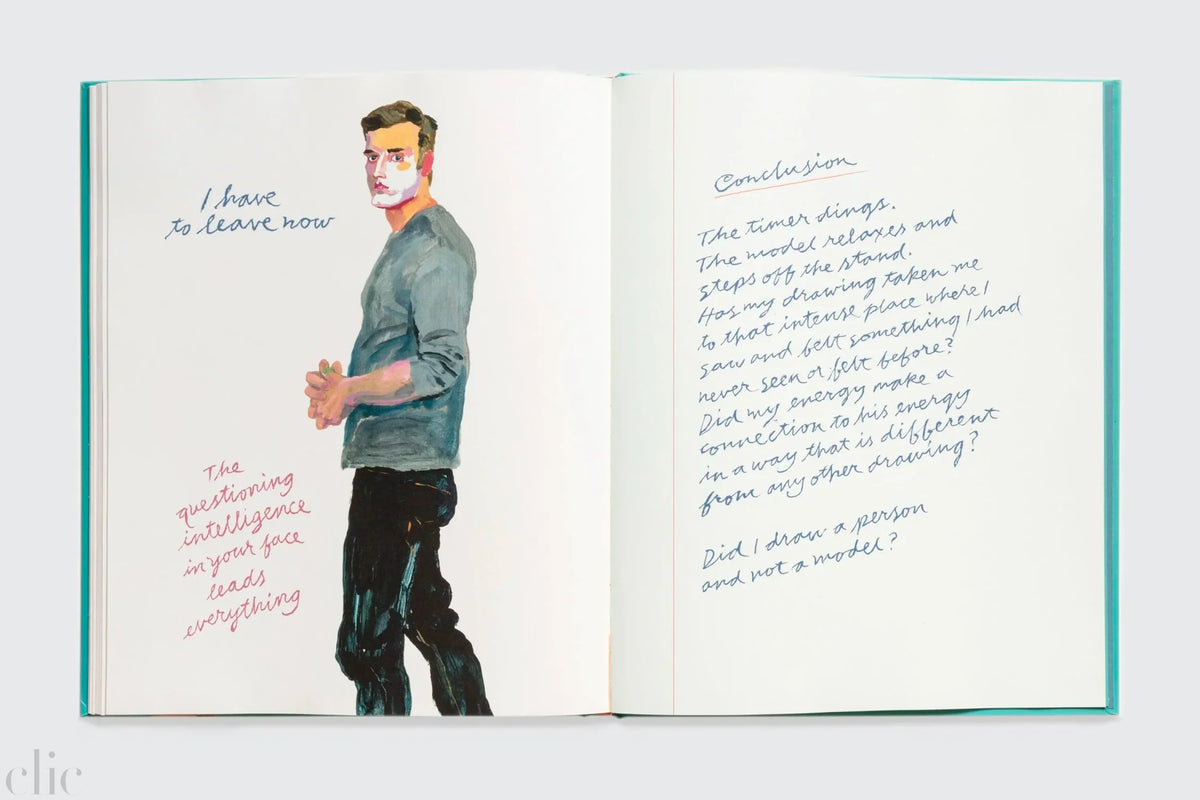 I have
to leave now
The
questioning
intelligence
in your face
leads
everything
Conclusion
The timer dings.
The model relaxes and
steps off the stand.
Has my drawing taken me
to that intense place where I
saw and felt something I had
never seen or felt before?
Did my energy make a
connection to his energy
in a way that is different
from any other drawing?
Did I draw a person
and not a model?
clic